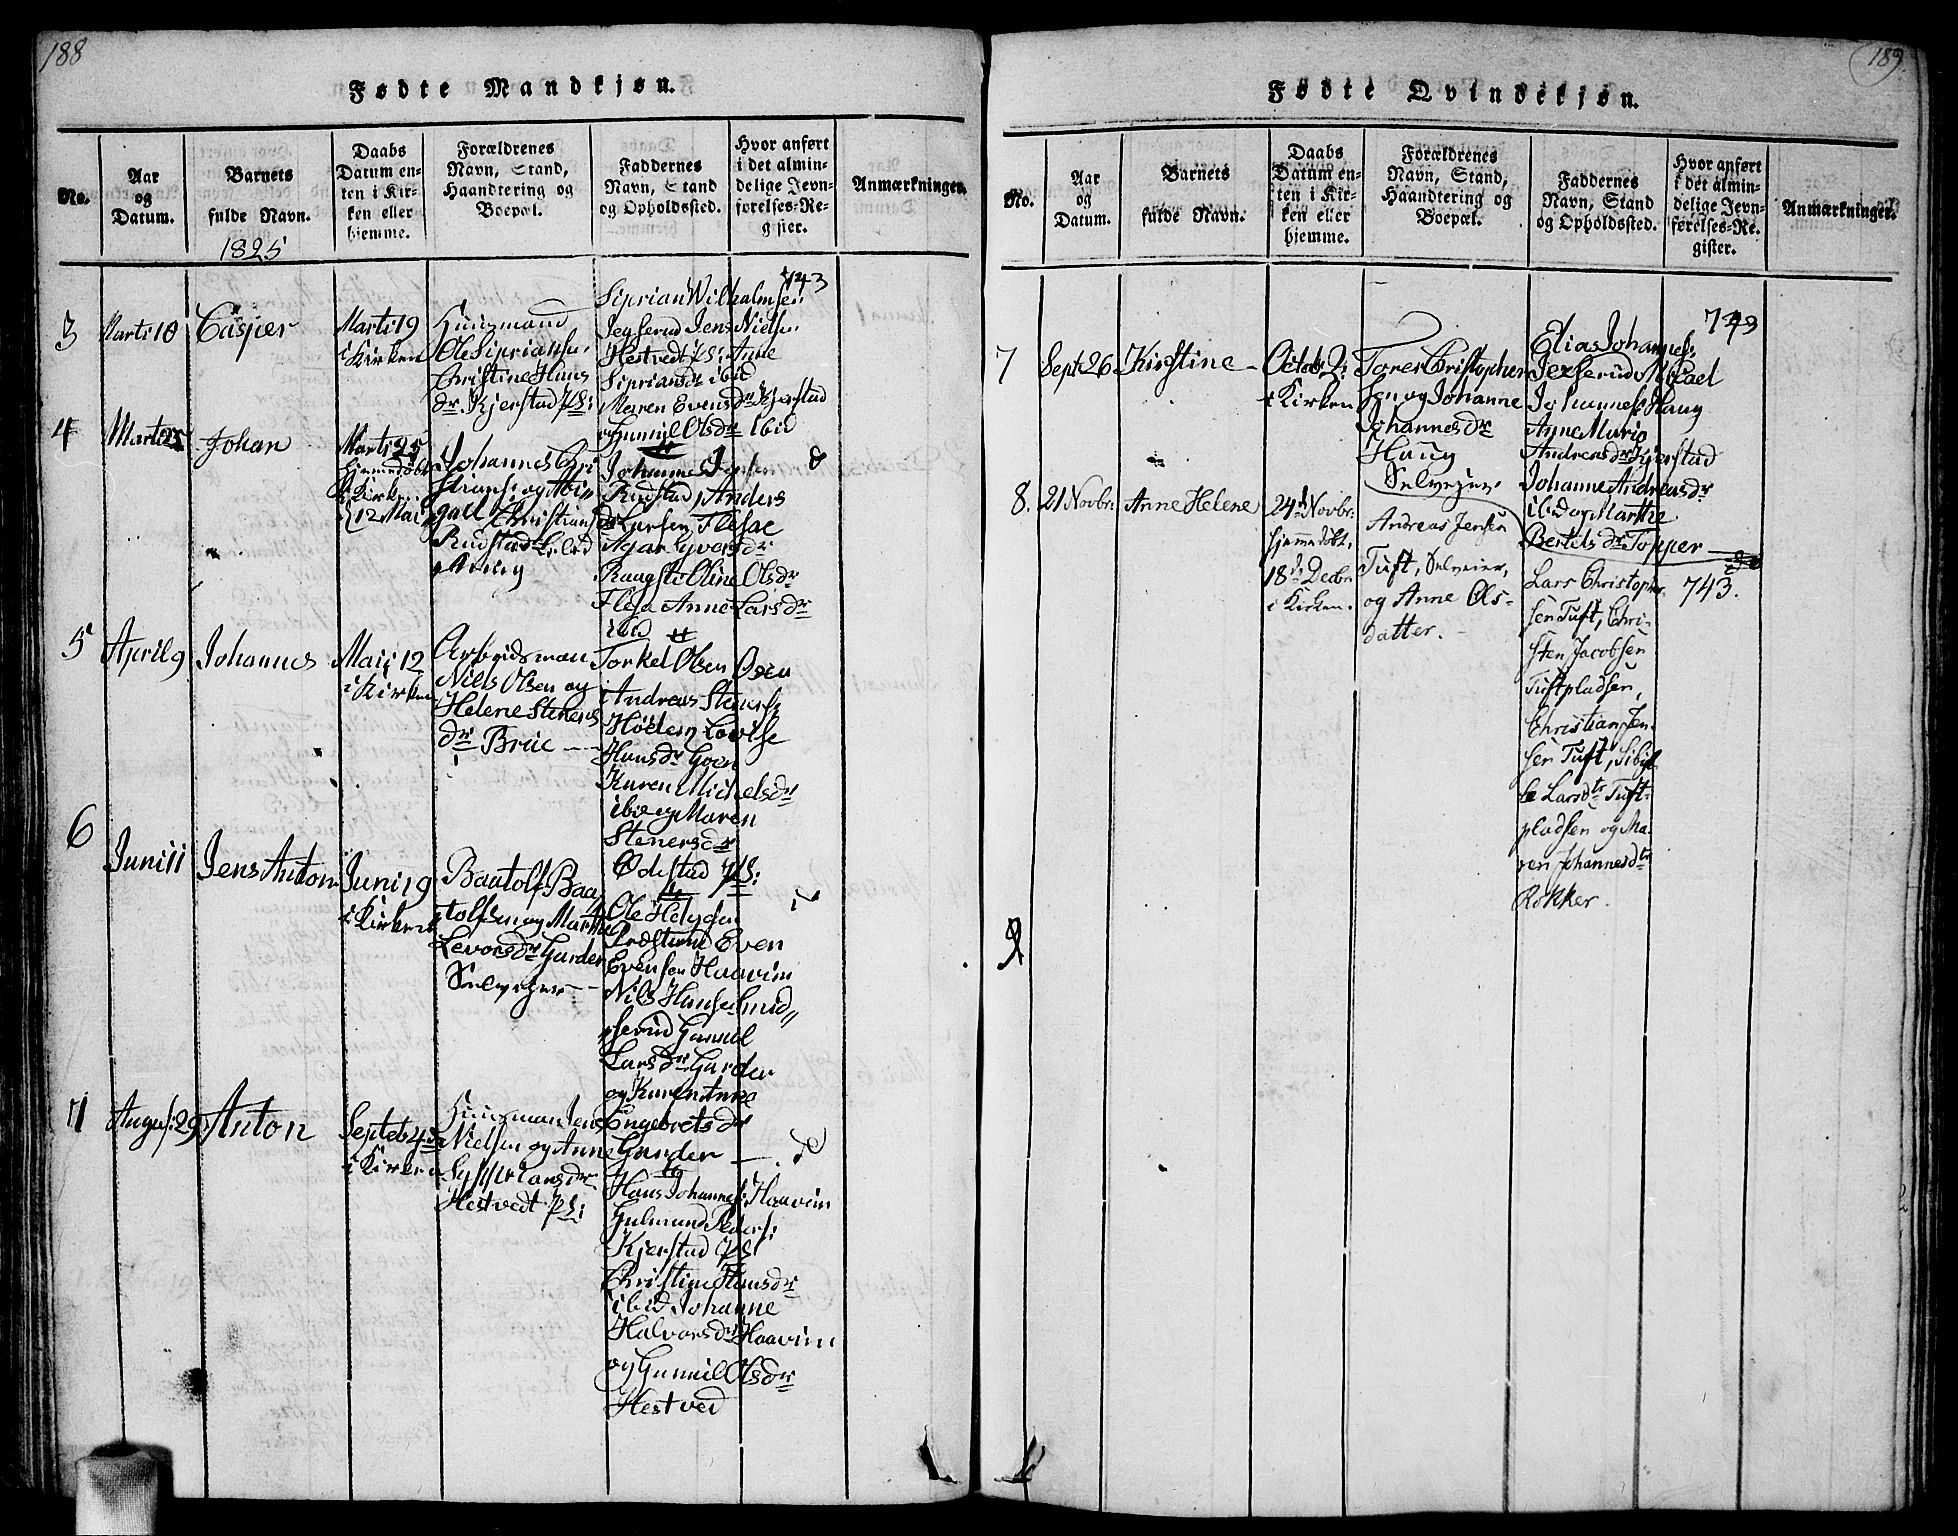 188
Fødte Mandkjøn.
No.
Aar
og
Datum.
Barnets
fulde Navn.
1825
Daabs
Datum en-
ten i Kir-
ken eller
hjemme.
Forældrenes
Navn, Stand,
Haandtering og
Boepæl.
Faddernes
Navn, Stand
og Opholdssted.
Hvor anført
i det almin-
delige Jevn-
førelses-Re-
gister.
Anmærkninger.
3
Marti 10
Casper
Marti 19
i Kirken
Huusmand
Ole Sipriansen
Christine Hans
dr. Kjerstad pl:
Siprian Wilhalmsen
Jegserud Jens Nielsen
Hestvedt pl: Anne
Sipriansdr ibid
Maren Evensdr Kjerstad
og Gunnil Olsdr ibid
743
4
Marti 25
Johan
Marti 25
hjemmedøbt
i Kirken
12 Mai
Johannes Chri
stians: og Abi
gael Christiansdr
Rudstad
Johannes Jensen
Rudstad, Anders
Larsen Flesae
Agar Syversdr
Oline Olsdr
Flesa Anne Larsdr
ibid
5
April 9
Johannes
Maii 12
i Kirken
Arbeidsman
Niels Olsen og
Helene Steners
dr Brue
Torkel Olsen Oven
Andreas Steners:
Lovise
Hansdr
Karen Michelsdr
ibid og Maren
Stenersdr
Ødestad pl:
6
Juni 11
Jens Anton
Juni 19
i Kirken
Bautolf Bau
tolfsen og Marthe
Levorsdr Garder
Selveger
Ole Helgesen
Præsterud Even
Evensen Haavim
Nils Hanse Smid
serud Gunnil
Larsdr Garder
og Karen Anne
Engebretsdr
Garder
7
August 29
Anton
Septeb 4de
i Kirken
Huusman Jens
Nielsen og Anne
Sypperiansdr
Hestvedt pl:
Hans Johannes: Haavim
Gulmund Peders:
Kjerstad pl:
Christine Hansdr
ibid Johanne
Halvorsdr Haavim
og Gunnil Olsdr
Hestved
189.
Fødte Qvindekjøn.
No.
Aar
og
Datum.
Barnets
fulde Navn.
Daabs
Datum en-
ten i Kir-
ken eller
hjemme.
Forældrenes
Navn, Stand,
Haandtering og
Boepæl.
Faddernes
Navn, Stand
og Opholdssted.
Hvor anført
i det almin-
delige Jevn-
førelses-Re-
gister.
Anmærkninger.
7
Sept: 26
Kirstine
Octob: 2:
i Kirken
Tores Christopher
sen og Johanne
Johannesdr
Haug
Selveger
Elias Johannes:
Jexserud Micael
Johannes: Haug
Anne Marie
Andreasdr Kjerstad
Johanne Andreasdr
ibid og Marthe
Bertelsdr Topper
743
8.
21 Novbr.
Anne Helene
24de Novbr.
hjemmedøbt,
18de Decbr.
i Kirken.
Andreas Jensen
Tuft, Selveier,
og Anne Ols-
datter.
Lars Christopher-
sen Tuft, Chri-
sten Jacobsen
Tuftpladsen,
Christian Jen-
sen Tuft, Sibil-
le Larsdtr Tuft-
pladsen og Ma-
ren Johannesdtr
Rokker.
743.
9